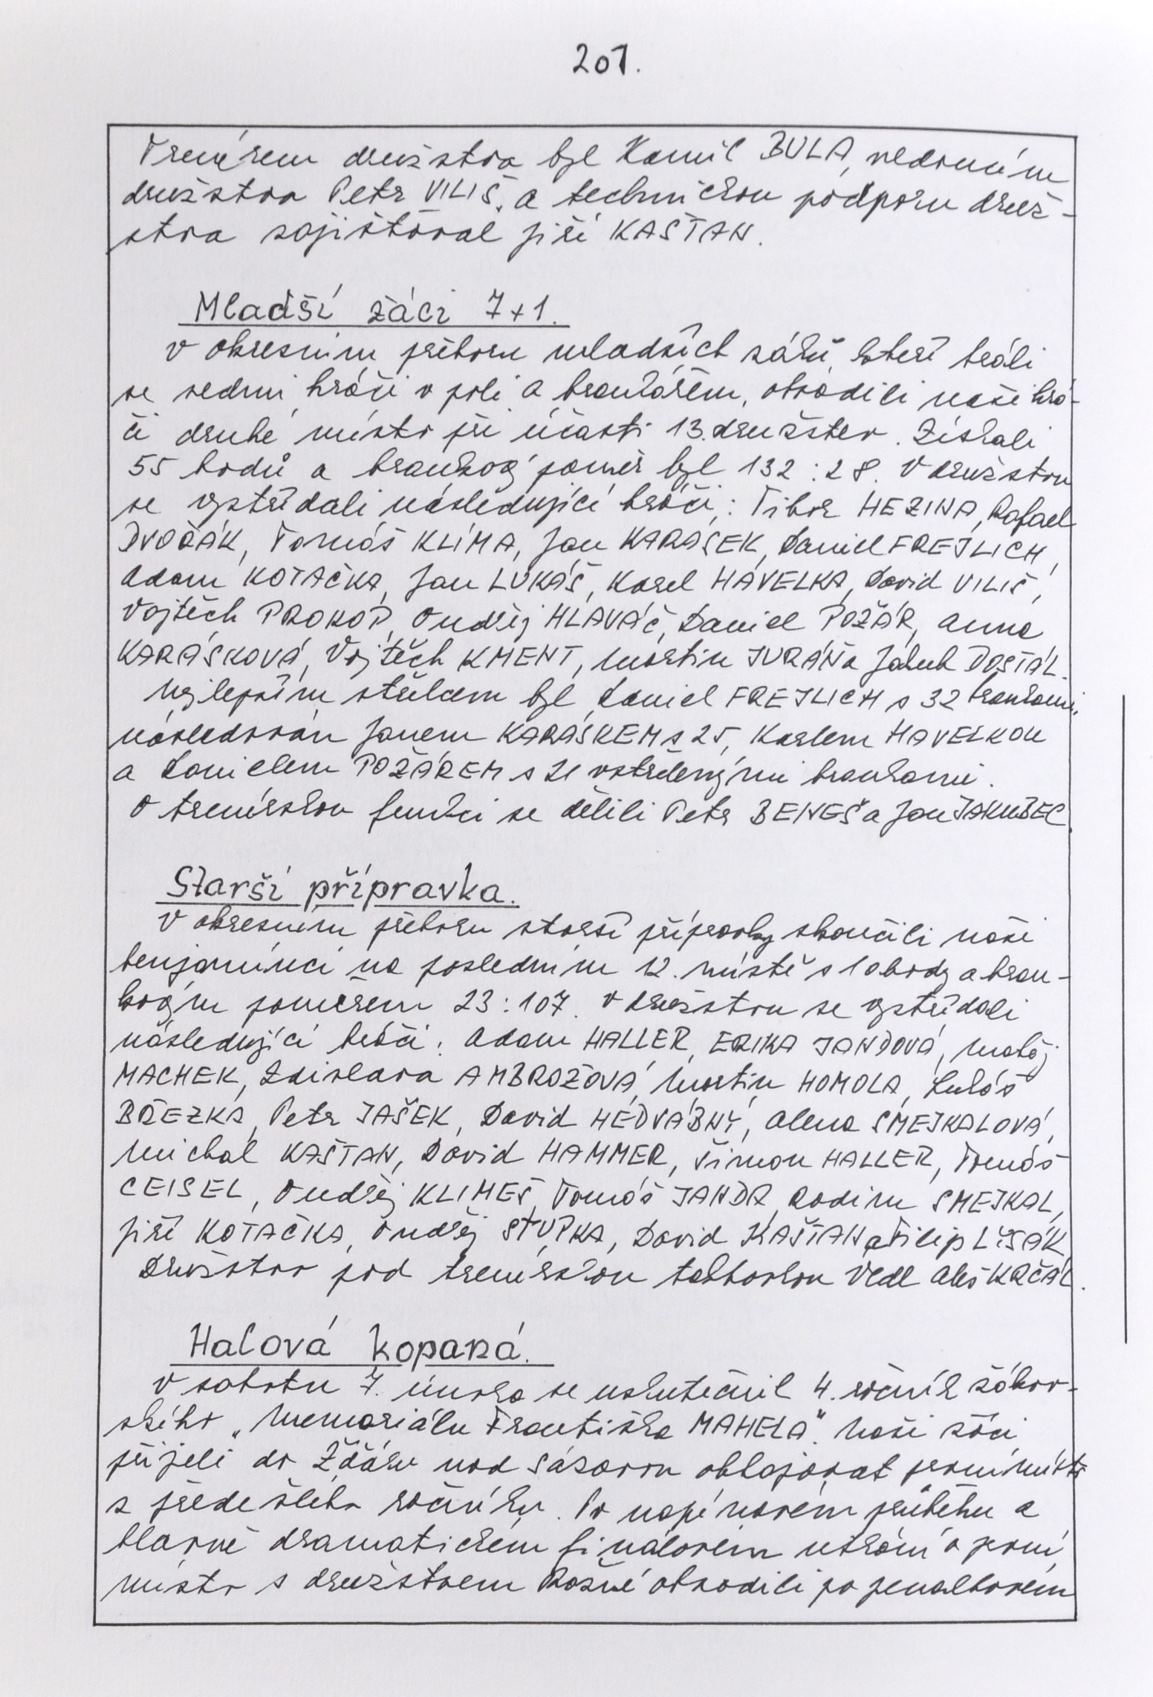 201.
Trenérem družstva byl Kamil BULA, vedoucím
družstva Petr VILIŠ, a technickou podporu druž-
stva zajišťoval Jiří KAŠTAN.
Mladší žáci 7+1.
V okresním přeboru mladších žáků, kteří hráli
se sedmi hráči v poli a brankářem, obsadili naši hrá-
či druhé místo při účasti 13. družstev. Získali
55 bodů a brankový poměr byl 132 : 28. V družstvu
se vystřídali následující hráči: Tibor HEZINA, Rafael
DVOŘÁK, Tomáš KLÍMA, Jan KARÁSEK, Daniel FREJLICH,
Adam KOTAČKA, Jan LUKÁŠ, Karel HAVELKA, David VILIŠ,
Vojtěch PROKOP, Ondřej HLAVÁČ, Daniel POŽÁR, Anna
KARÁSKOVÁ, Vojtěch KMENT, Martin JURÁŇ a Jakub DOSTÁL.
Nejlepším střelcem byl Daniel FREJLICH s 32 brankami,
následován Janem KARÁSKEM s 25, Karlem HAVELKOU
a Danielem POŽÁREM s 21 vstřelenými brankami.
O trenérskou funkci se dělili Petr BENEŠ a Jan JAKUBEC.
Starší přípravka.
V okresním přeboru starší přípravky skončili naši
benjamínci na posledním 12. místě s 10 body a bran-
kovým poměrem 23 : 107. V družstvu se vystřídali
následující hráči: Adam HALLER, ERIKA JANDOVÁ, Matěj
MACHEK, Zdislava AMBROŽOVÁ, Martin HOMOLA, Lukáš
BŘEZKA, Petr JAŠEK, David HEDVÁBNÝ, Alena SMEJKALOVÁ,
Michal KAŠTAN, David HAMMER, Šimon HALLER, Tomáš
CEISEL, Ondřej KLIMEŠ, Tomáš JANDA, Radim SMEJKAL,
Jiří KOTAČKA, Ondřej STUPKA, David KAŠTAN a Filip LYSÁK.
Družstvo pod trenérskou taktovkou vedl Aleš KRČÁL.
Halová kopaná.
V sobotu 7. února se uskutečnil 4. ročník žákov-
ského „Memoriálu Františka MAHELA“. Naši žáci
přijeli do Žďáru nad Sázavou obhajovat první místo
z předešlého ročníku. Po napínavém průběhu a
hlavně dramatickém finálovém utkání o první
místo s družstvem Rosné obsadili po penaltovém